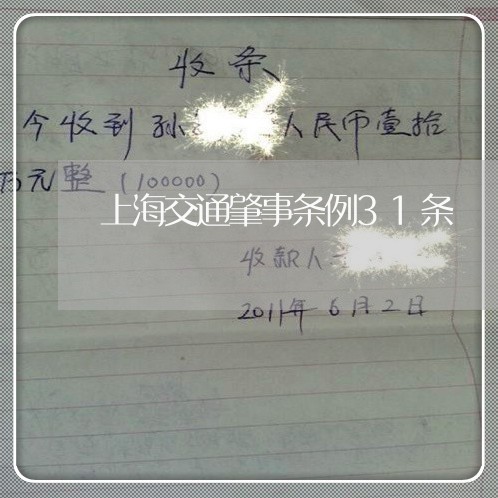 收条
今收到孙 人民币壹拾
万元整(100000)
上海交通肇事条例31条
收款人
2011年6月2日